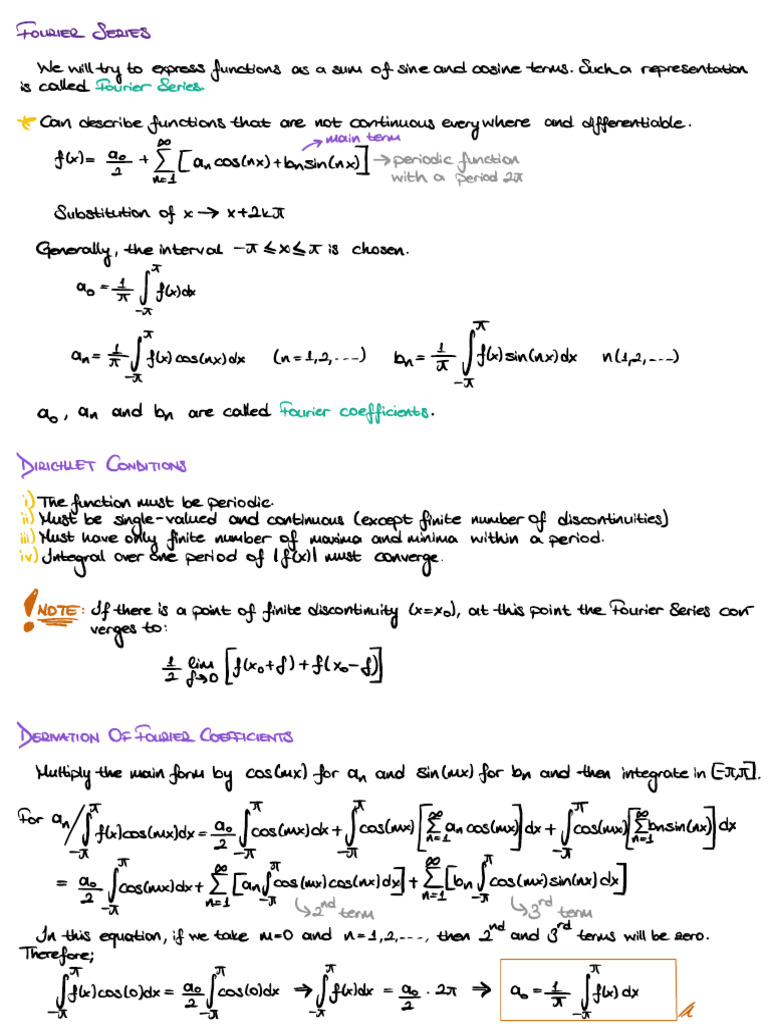 FOURIER SERIES
We will try to express functions as a sum of sine and cosine terms. Such a representation
is called Fourier Series.
★ Can describe functions that are not continuous everywhere and differentiable.
→ main term
f(x) = a₀/2 + ∑_{n=1}^{∞} [aₙ cos(nx) + bₙ sin(nx)] → periodic function
with a period 2π
Substitution of x → x+2kπ
Generally, the interval -π ≤ x ≤ π is chosen.
a₀ = 1/π ∫_{-π}^{π} f(x)dx
aₙ = 1/π ∫_{-π}^{π} f(x) cos(nx)dx (n=1,2,---) bₙ = 1/π ∫_{-π}^{π} f(x) sin(nx)dx n(1,2,---)
a₀, aₙ and bₙ are called Fourier coefficients.
DIRICHLET CONDITIONS
i) The function must be periodic.
ii) Must be single-valued and continuous (except finite number of discontinuities)
iii) Must have only finite number of maxima and minima within a period.
iv) Integral over one period of |f(x)| must converge.
! NOTE: If there is a point of finite discontinuity (x=x₀), at this point the Fourier Series con
verges to:
1/2 lim_{f→0} [f(x₀+f) + f(x₀-f)]
DERIVATION OF FOURIER COEFFICIENTS
Multiply the main form by cos(mx) for aₙ and sin(mx) for bₙ and then integrate in [-π,π].
For aₙ / ∫_{-π}^{π} f(x)cos(mx)dx = a₀/2 ∫_{-π}^{π} cos(mx)dx + ∫_{-π}^{π} cos(mx) [∑_{n=1}^{∞} aₙ cos(mx)] dx + ∫_{-π}^{π} cos(mx) [∑_{n=1}^{∞} bₙ sin(nx)] dx
= a₀/2 ∫_{-π}^{π} cos(mx)dx + ∑_{n=1}^{∞} [aₙ ∫_{-π}^{π} cos(mx) cos(nx) dx] + ∑_{n=1}^{∞} [bₙ ∫_{-π}^{π} cos(mx) sin(nx) dx]
↳ 2nd term ↳ 3rd term
In this equation, if we take m=0 and n=1,2,---, then 2nd and 3rd terms will be zero.
Therefore;
∫_{-π}^{π} f(x) cos(0)dx = a₀/2 ∫_{-π}^{π} cos(0)dx → ∫_{-π}^{π} f(x)dx = a₀/2 · 2π → a₀ = 1/π ∫_{-π}^{π} f(x) dx